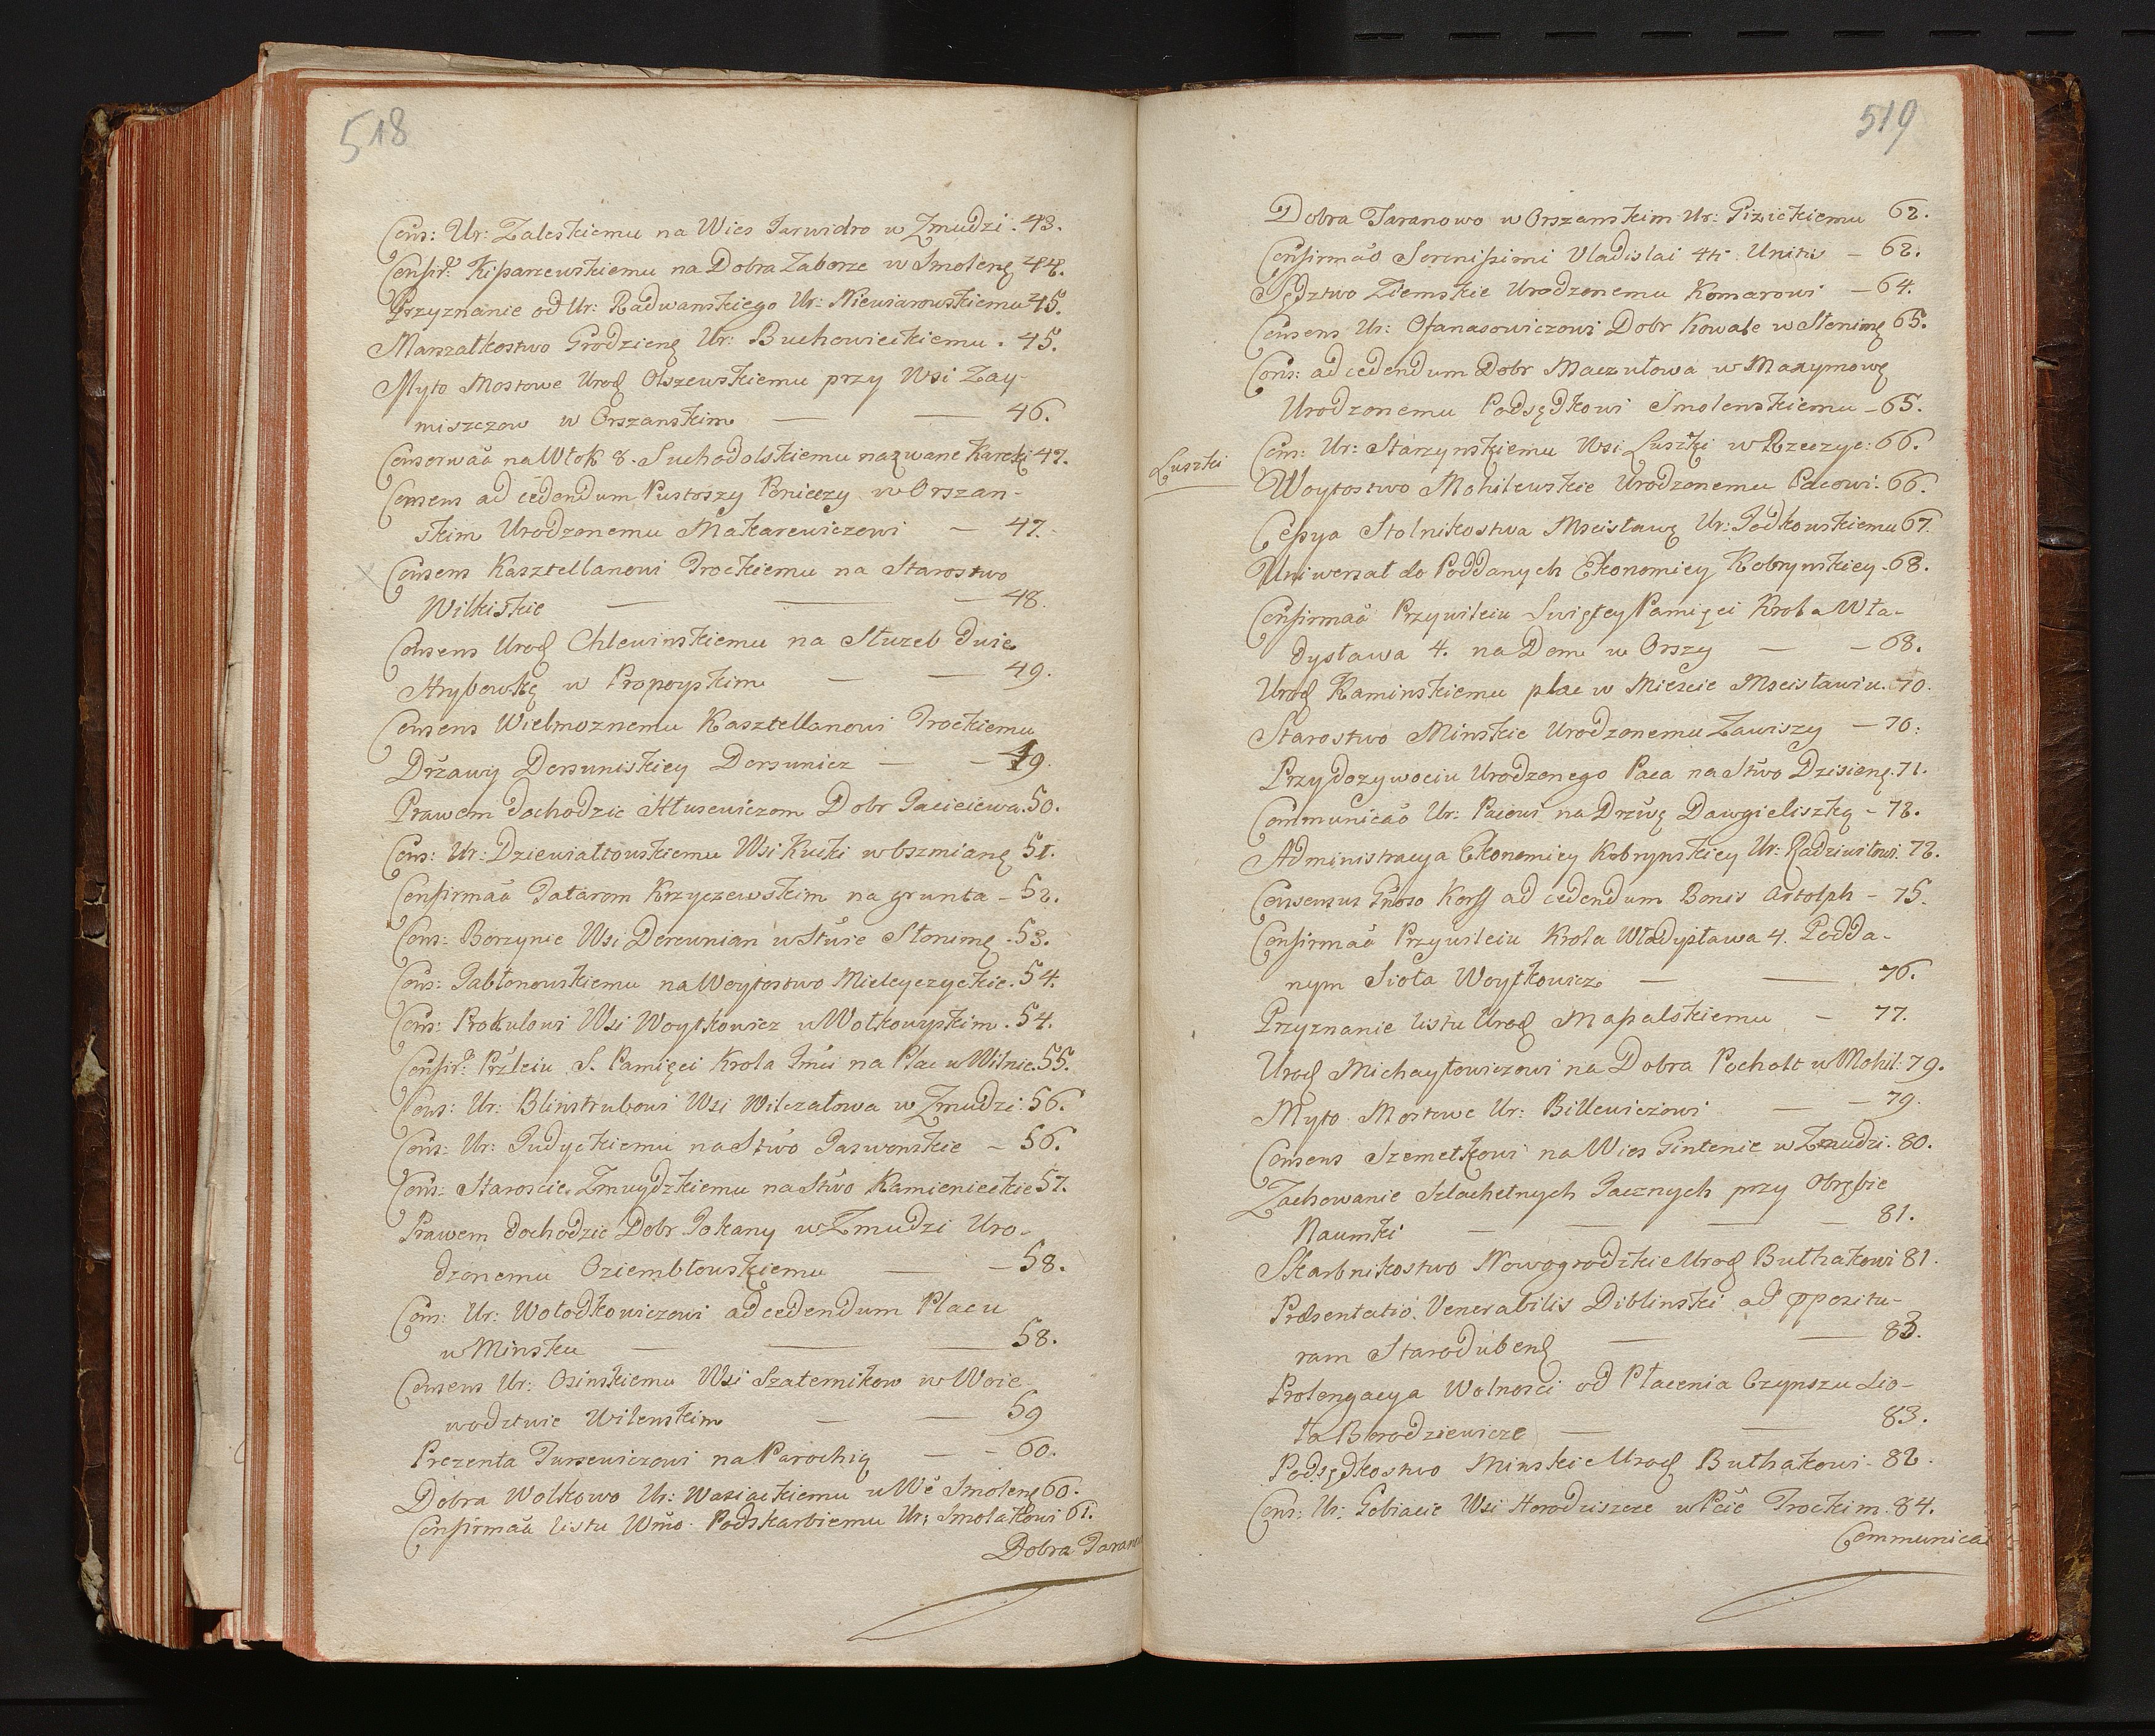 518
Cons: Ur: Zaleskiemu na Wies Jarwidro w Zmudzi. 43.
Consir: Kiparzewskiemu na Dobra Zaborze w Smoleng 44.
Przyznanie od Ur: Radwanskiego Ur: Niewiarowskiemu 45.
Marszałkostwo Grodzieng Ur: Buchowieckiemu. 45.
Myto Mostowe Urod Olszewskiemu przy Wsi Zay-
miszczow w Orszanskim — — 46.
Conserwaò na Włok 8. Suchodolskiemu nazwane Kareki 47.
Consens ad cedendum Pustoszy Poniczy w Orszan-
skim Urodzonemu Makarewiczowi — 47.
Consens Kasztellanowi Trockiemu na Starostwo
Wilkiskie — — — 48.
Consens Urod Chlewinskiemu na Słuzeb dwie
Hrybowkę w Propoyskim — — 49.
Consens Wielmoznemu Kasztellanowi Trockiemu
Drzawy Dorsuniskiey Dorsunicz — — 49.
Prawem dochodzic Hłusewiczom Dobr Jacieiewa. 50.
Cons: Ur: Dziewiałtowskiemu Wsi Kucki w Oszmiang 51.
Consirmaò Tatarom Krzyczewskim na grunta – 52.
Cons: Borzynie Wsi Derewnian w Stwie Słonimg. 53.
Cons: Jabłonowskiemu na Woytostwo Mieleyczyckie. 54.
Cons: Prokulowi Wsi Woytkowicz w Wołkowyskim. 54.
Consir: Przleiu S. Pamięci Krola Jmci na Plac w Wilnie. 55.
Cons: Ur: Blinstrubowi Wsi Wilczatowa w Zmudzi: 56.
Cons: Ur: Judyckiemu na Stwo Jaswonskie – 56.
Cons: Staroscie Zmuydzkiemu na Stwo Kamienieckie 57.
Prawem dochodzic Dobr Pokany w Zmudzi Uro-
dzonemu Oziembłowskiemu — – 58.
Cons: Ur: Wołodkowiczowi ad cedendum Placu
w Minsku — — 58.
Consens Ur: Osinskiemu Wsi Szaternikow w Woie-
wodztwie Wilenskim — — 59
Prezenta Jurewiczowi na Parochią — – 60.
Dobra Wolkowo Ur: Wasiackiemu w Wè Smoleng 60.
Consirmaò listu Wmo. Podskarbiemu Ur: Smolakowi 61.
Dobra Taran
519
Dobra Taranowo w Orszanskim Ur: Pizickiemu 62.
Consirmaò Serenissimi Vladislai 4ti Unitis – 62.
Sędztwo Ziemskie Urodzonemu Komarowi – 64.
Consens Ur: Ofanasowiczowi Dobr Kowale w Słonimg 65.
Cons: ad cedendum Dobr Maczułowa w Maxymowg
Urodzonemu Podsędkowi Smolenskiemu – 65.
Cons: Ur: Starzynskiemu Wsi Luszki w Rzeczyc: 66.
Luszki
Woytostwo Mohilewskie Urodzonemu Pacowi. 66.
Cessya Stolnikostwa Mscisławg Ur: Jodkowskiemu 67.
Uniwersał do Poddanych Ekonomiey Kobrynskiey. 68.
Consirmaò Przywileiu Swiętey Pamięci Krola Wła-
dysława 4. na Dom w Orszy — – 68.
Urod Kaminskiemu plac w Miescie Mscisławiu. 70.
Starostwo Minskie Urodzonemu Zawiszy – 70:
Przydozywociu Urodzonego Paca na Stwo Dzisieng. 71.
Communicaò Ur: Pacowi na Drzwę Dawgieliszkę – 72.
Administracya Ekonomiey Kobrynskiey Ur: Radziwiłowi. 72.
Consensus Gnoso Korff ad cedendum Bonis Astolph – 75.
Consirmaò Przywileiu Krola Władysława 4. Podda-
nym Sioła Woytkowicz — — 76.
Przyznanie listu Urod Mapalskiemu – 77.
Urod Michayłowiczowi na Dobra Pochołt w Mohil: 79.
Myto Mostowe Ur: Billewiczowi — – 79.
Consens Szemetkowi na Wies Gintenie w Zmudzi. 80.
Zachowanie Szlachetnych Jacznych przy Obrębie
Naumki — — — — 81.
Skarbnikostwo Nowogrodzkie Urod Bułhakowi 81.
Præsentatio Venerabilis Diblinski ad ppozitu-
ram Starodubeng — — 83.
Prolongacya Wolnosci od Płacenia Czynszu Sio-
ła Borodziewicze — — 83.
Podsędkostwo Minskie Urod Bułhakowi. 82.
Cons: Ur: Gobiacie Wsi Horodziszcze w Pcie Trockim. 84.
Communicaò